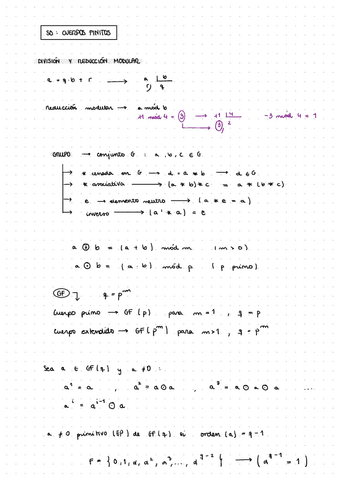 SD : CUERPOS FINITOS
DIVISIÓN Y REDUCCIÓN MODULAR
a = q · b + r → a | b
r) q
reducción modular → a mód b
11 mód 4 = 3 → 11 | 4 -3 mód 4 = 1
3) 2
GRUPO → conjunto G : a, b, c ∈ G
→ * cerrada en G → d = a * b → d ∈ G
→ * asociativa → (a * b) * c = a * (b * c)
→ e → elemento neutro → (a * e = a)
→ inverso → (a' * a) = e
a ⊕ b = (a + b) mód m (m > 0)
a ⊙ b = (a · b) mód p (p primo)
GF q = p^m
Cuerpo primo → GF(p) para m = 1, q = p
Cuerpo extendido → GF(p^m) para m > 1, q = p^m
Sea a ∈ GF(q) y a ≠ 0 :
a^1 = a , a^2 = a ⊙ a , a^3 = a ⊙ a ⊙ a ...
a^i = a^{i-1} ⊙ a
a ≠ 0 primitivo (EP) de GF(q) si orden(a) = q - 1
F = { 0, 1, α, α^2, α^3, ..., α^{q-2} } → (α^{q-1} = 1)